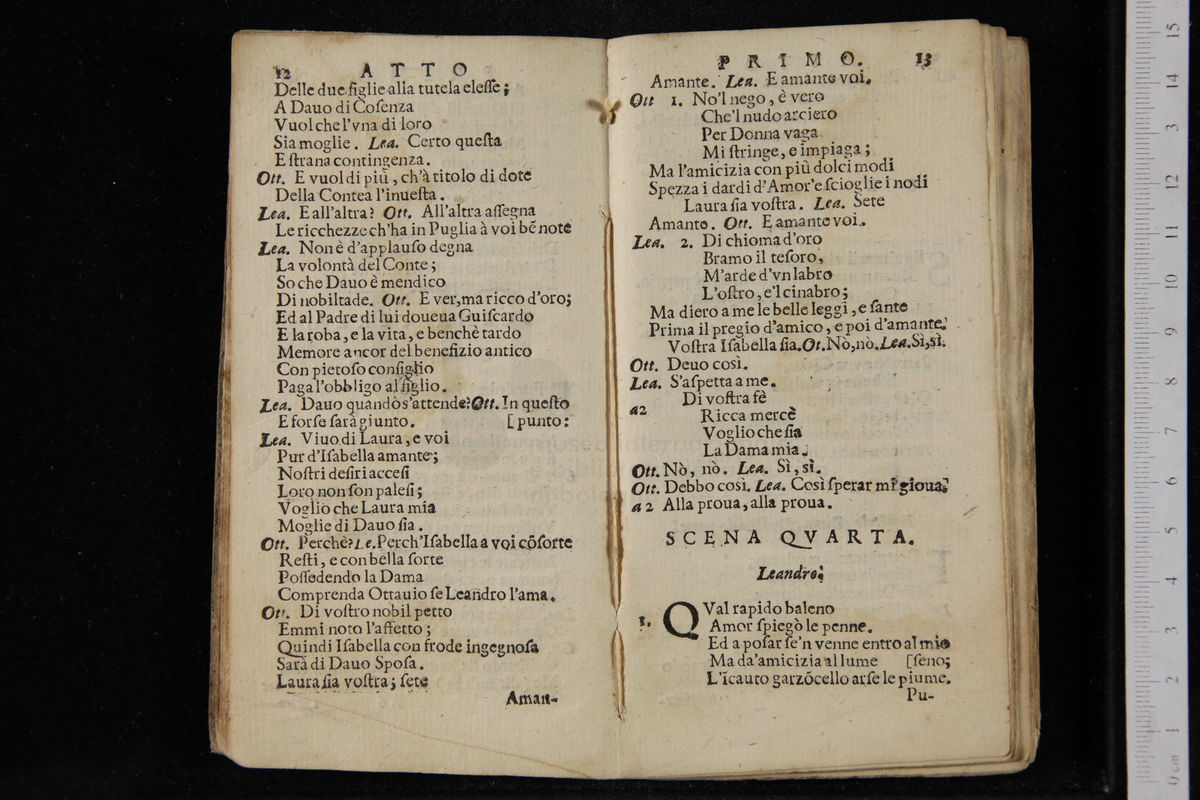 12 ATTO
Delle due figlie alla tutela eleſſe;
A Dauo di Coſenza
Vuol che l'vna di loro
Sia moglie. Lea. Certo queſta
E ſtrana contingenza.
Ott. E vuol di più, ch'à titolo di dote
Della Contea l'inueſta.
Lea. E all'altra? Ott. All'altra aſſegna
Le ricchezze ch'ha in Puglia à voi bẽ note
Lea. Non è d'applauſo degna
La volontà del Conte;
So che Dauo è mendico
Di nobiltade. Ott. E ver, ma ricco d'oro;
Ed al Padre di lui doueua Guiſcardo
E la roba, e la vita, e benchè tardo
Memore ancor del benefizio antico
Con pietoſo conſiglio
Paga l'obbligo al figlio.
Lea. Dauo quandò s'attende? Ott. In queſto
E forſe ſarà giunto. [punto:
Lea. Viuo di Laura, e voi
Pur d'Iſabella amante;
Noſtri deſiri acceſi
Loro non ſon paleſi;
Voglio che Laura mia
Moglie di Dauo ſia.
Ott. Perchè? Le. Perch'Iſabella a voi cõſorte
Reſti, e con bella ſorte
Poſſedendo la Dama
Comprenda Ottauio ſe Leandro l'ama.
Ott. Di voſtro nobil petto
Emmi noto l'affetto;
Quindi Iſabella con frode ingegnoſa
Sarà di Dauo Spoſa.
Laura ſia voſtra; ſete
Aman-
PRIMO. 13
Amante. Lea. E amante voi.
Ott 1. No'l nego, è vero
Che'l nudo arciero
Per Donna vaga
Mi ſtringe, e impiaga;
Ma l'amicizia con più dolci modi
Spezza i dardi d'Amor'e ſcioglie i nodi
Laura ſia voſtra. Lea. Sete
Amante. Ott. E amante voi.
Lea. 2. Di chioma d'oro
Bramo il teſoro,
M'arde d'vn labro
L'oſtro, e'l cinabro;
Ma diero a me le belle leggi, e ſante
Prima il pregio d'amico, e poi d'amante.
Voſtra Iſabella ſia. Ot. Nò, nò. Lea. Sì, sì.
Ott. Deuo così.
Lea. S'aſpetta a me.
Di voſtra fè
a2 Ricca mercè
Voglio che ſia
La Dama mia.
Ott. Nò, nò. Lea. Sì, sì.
Ott. Debbo così. Lea. Così ſperar mi gioua.
a 2 Alla proua, alla proua.
SCENA QVARTA.
Leandro.
1. QVal rapido baleno
Amor ſpiegò le penne.
Ed a poſar ſe'n venne entro al mio
Ma da'amicizia al lume [ſeno;
L'icauto garzõcello arſe le piume.
Pu-
15
14
13
12
11
10
9
8
7
6
5
4
3
2
1
0 cm